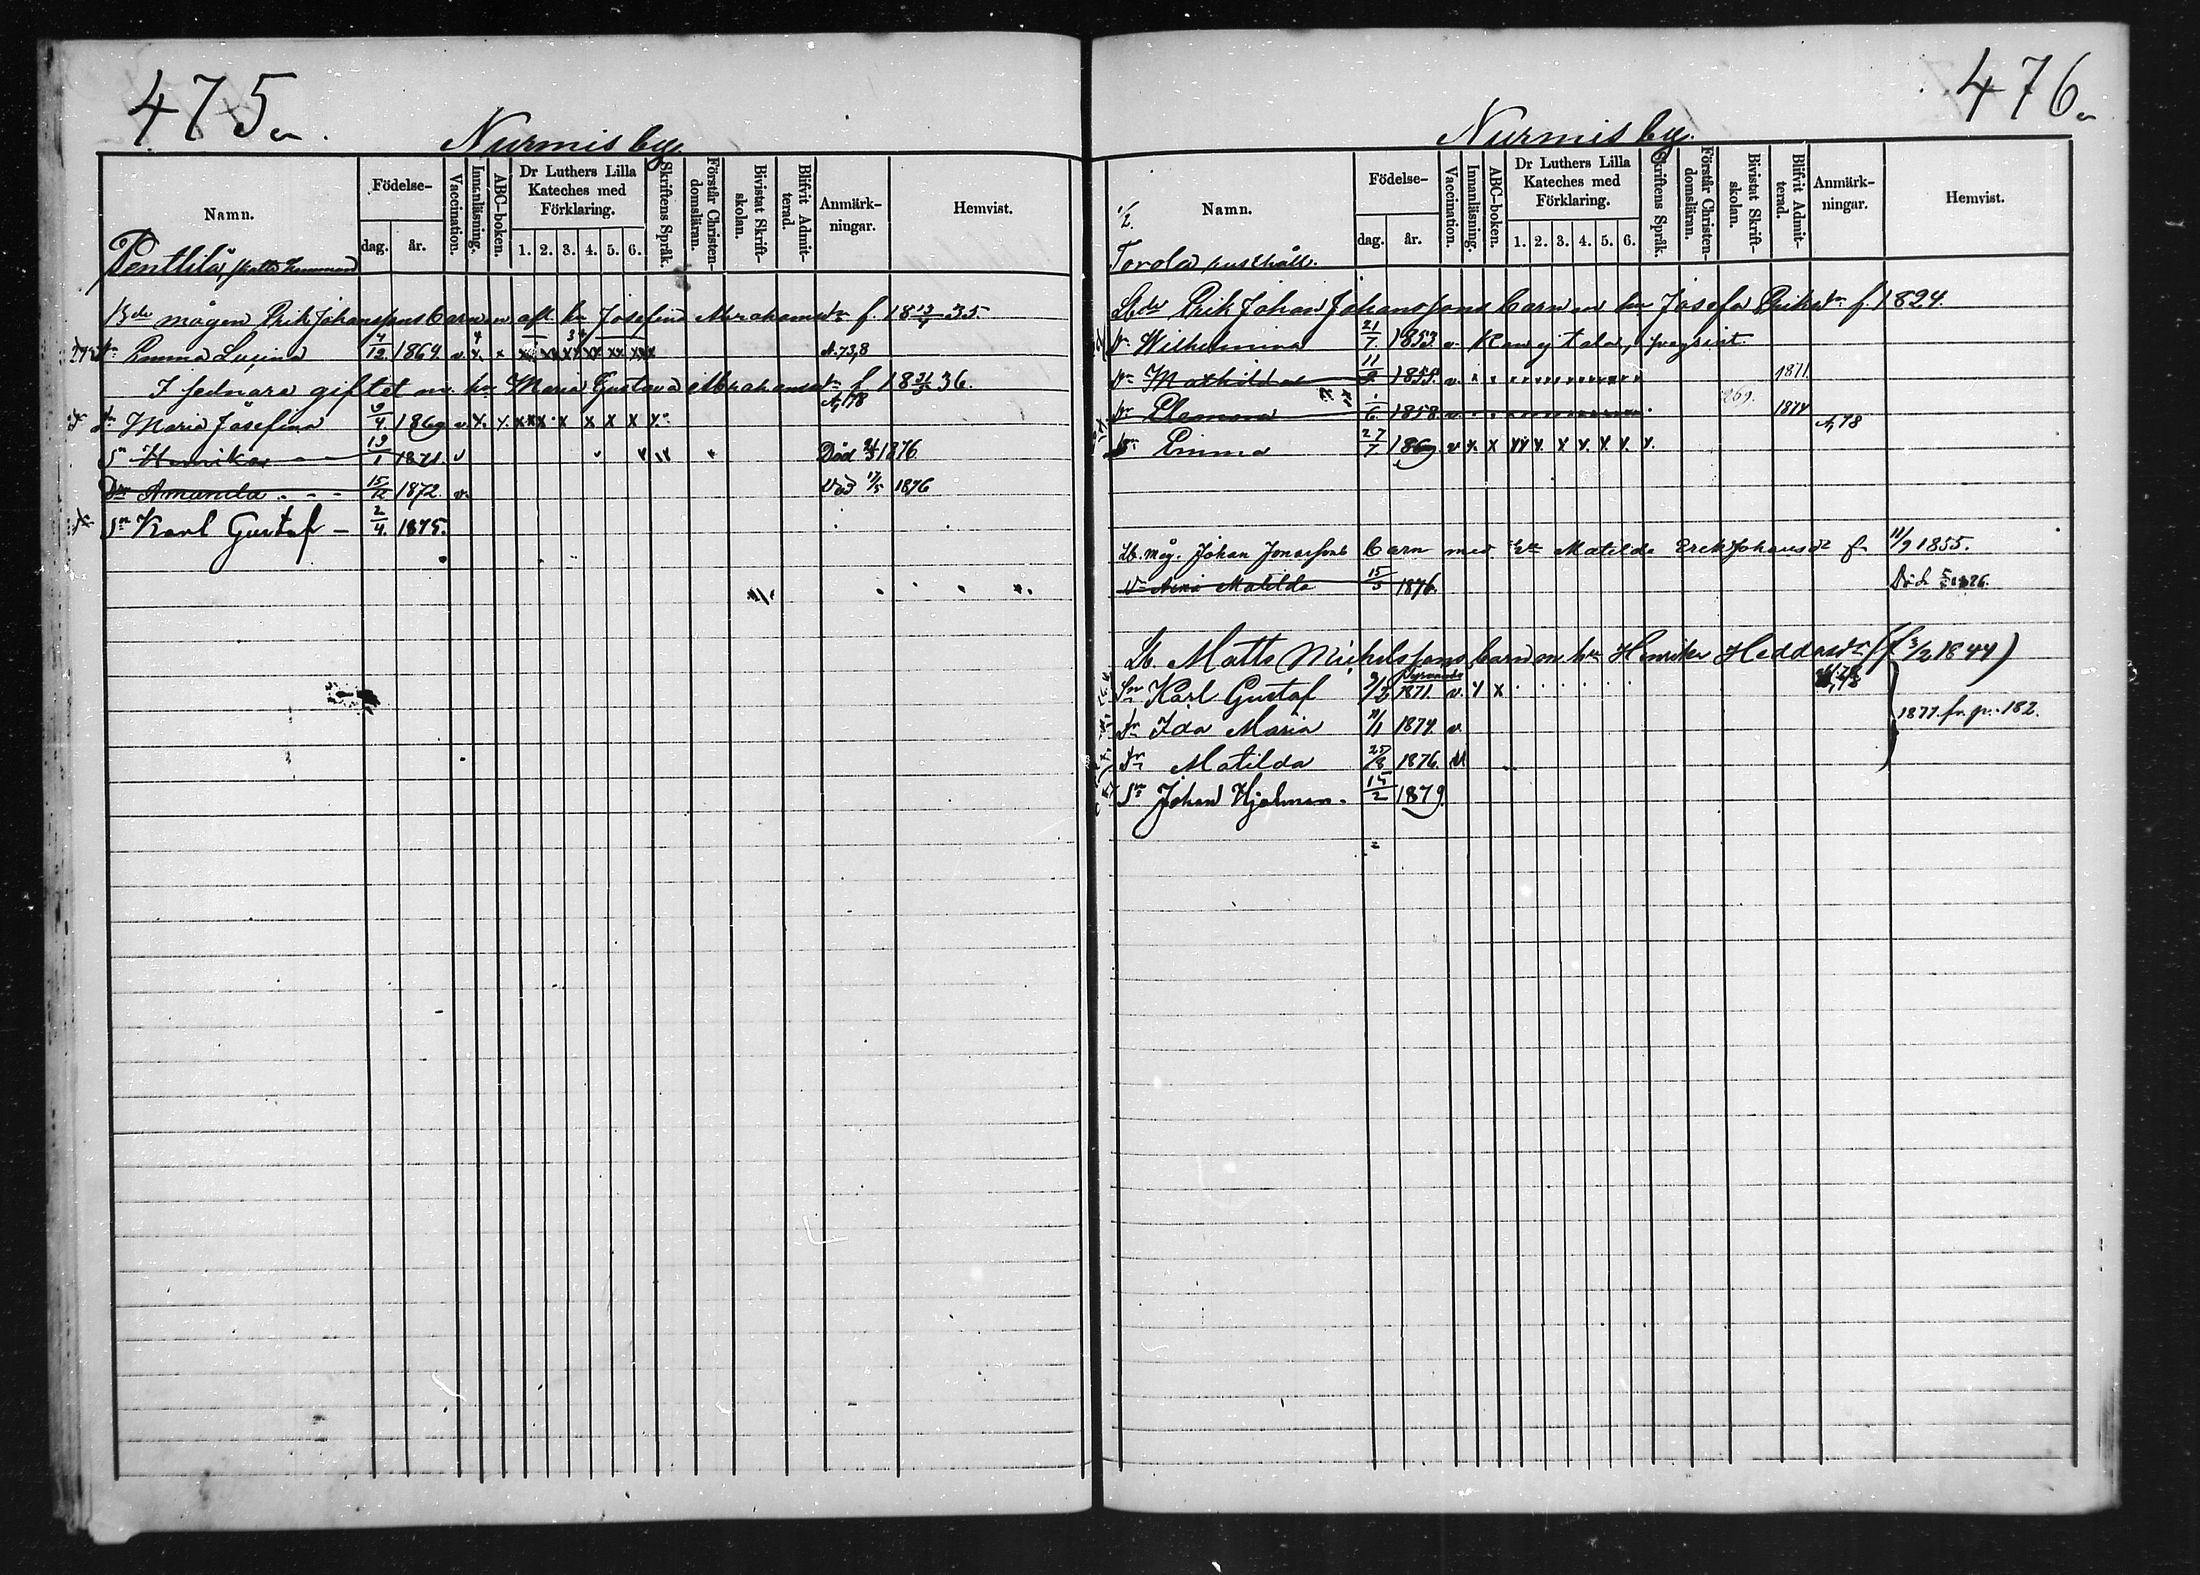 475
Nurmis by.
Namn.
Födelse-
dag.
år.
Vaccination.
Innanläsning.
ABC-boken.
Dr Luthers Lilla Kateches med Förklaring.
1. 2. 3. 4. 5. 6.
Skriftens Språk.
Förstår Christen-domsläran.
Bivistat Skrift-skolan.
Blifvit Admit-terad.
Anmärk-ningar.
Hemvist.
Penttilä, skatte hemman
Bde mågen Erik Johanssons barn m afl. hu Josefina Abrahamsdr f. 18 35
Dr Emma Lusina 4/12 1864. v. x. x
I sednare giftet m. hu Maria Gustava Abrahamsdr f. 18 36.
A, 78
Dr Maria Josefina 9/4 1869 v. x. x. x x x x x x x
Sn Henrik 19/1 1871. v Död 1876
Dr Amanda - - - 15/12 1872. v. Död 17/5 1876
Sn Karl Gustaf - 2/4. 1875.
476
Nurmis by.
1/2.
Namn.
Födelse-
dag.
år.
Vaccination.
Innanläsning.
ABC-boken.
Dr Luthers Lilla Kateches med Förklaring.
1. 2. 3. 4. 5. 6.
Skriftens Språk.
Förstår Christen-domsläran.
Bivistat Skrift-skolan.
Blifvit Admit-terad.
Anmärk-ningar.
Hemvist.
Torola rusthåll.
Lbde Erik Johan Johanssons barn m hu Josefa Eriksdr f. 1824.
Dr Wilhelmina 21/7 1853 v. Kan ej tala,
Dr Mathilda 11/9 1855. v. 1871.
Dr Eleonora 1/6 1858. v. 269. 1874
A, 78
Dr Emma 27/7 1869. v. x. x x x x. x. x. x. x. x.
Lb. måg. Johan Jonassons barn med hu Matilda Erik Johansdr f. 11/9 1855.
Dr Matilda 15/5 1876. Död
Lb Matts Michelssons barn m. hu Henrika Heddasdr (f 3/2 1844)
Sn Karl Gustaf 1871. v. x x
1877. fr. p. 182.
Dr Ida Maria 1874. v.
Dr Matilda 25/8 1876.
Sn Johan Hjalmar. 15/2 1879